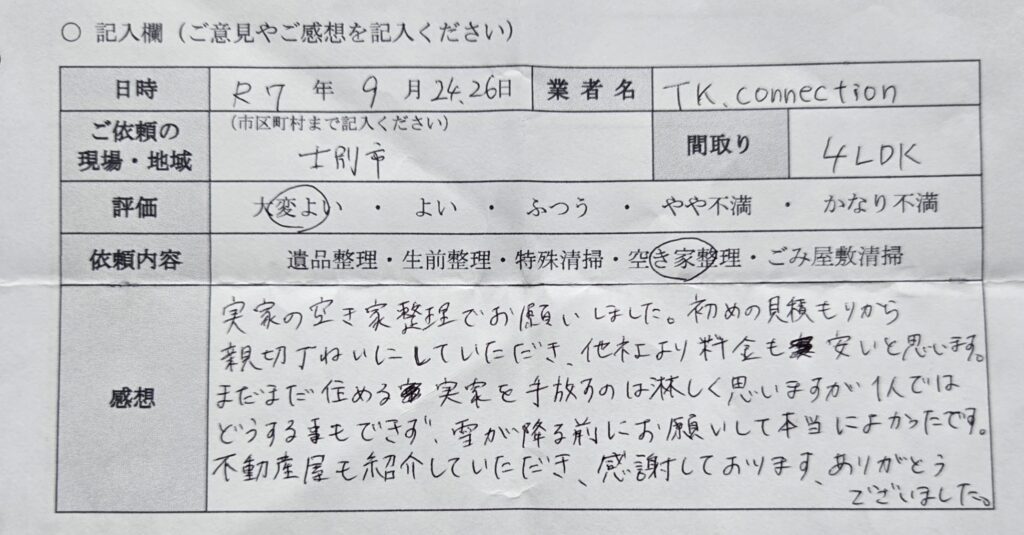 ○ 記入欄（ご意見やご感想を記入ください）
日時 R7年9月24.26日 業者名 TK.connection
ご依頼の現場・地域 （市区町村まで記入ください） 士別市 間取り 4LDK
評価 大変よい ・ よい ・ ふつう ・ やや不満 ・ かなり不満
依頼内容 遺品整理・生前整理・特殊清掃・空き家整理・ごみ屋敷清掃
感想
実家の空き家整理でお願いしました。初めの見積もりから
親切丁ねいにしていただき、他社より料金も安いと思います。
まだまだ住める実家を手放すのは淋しく思いますが1人では
どうする事もできず、雪が降る前にお願いして本当によかったです。
不動産屋も紹介していただき、感謝しております、ありがとう
ございました。